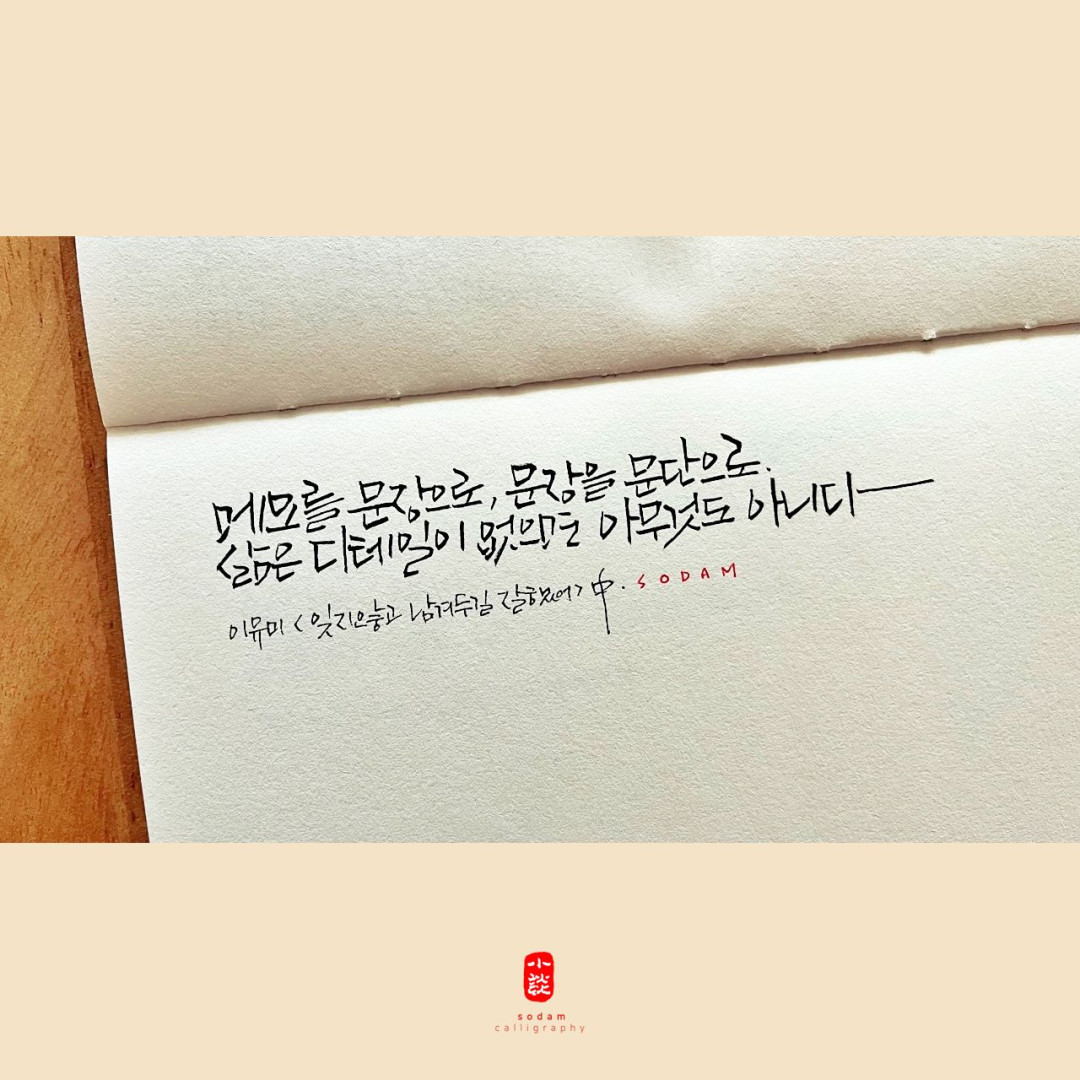 메모를 문장으로, 문장을 문단으로.
삶은 디테일이 없으면 아무것도 아니다
이유미 <잊지않고 남겨두길 잘했어> 中. SODAM
小談
sodam
calligraphy